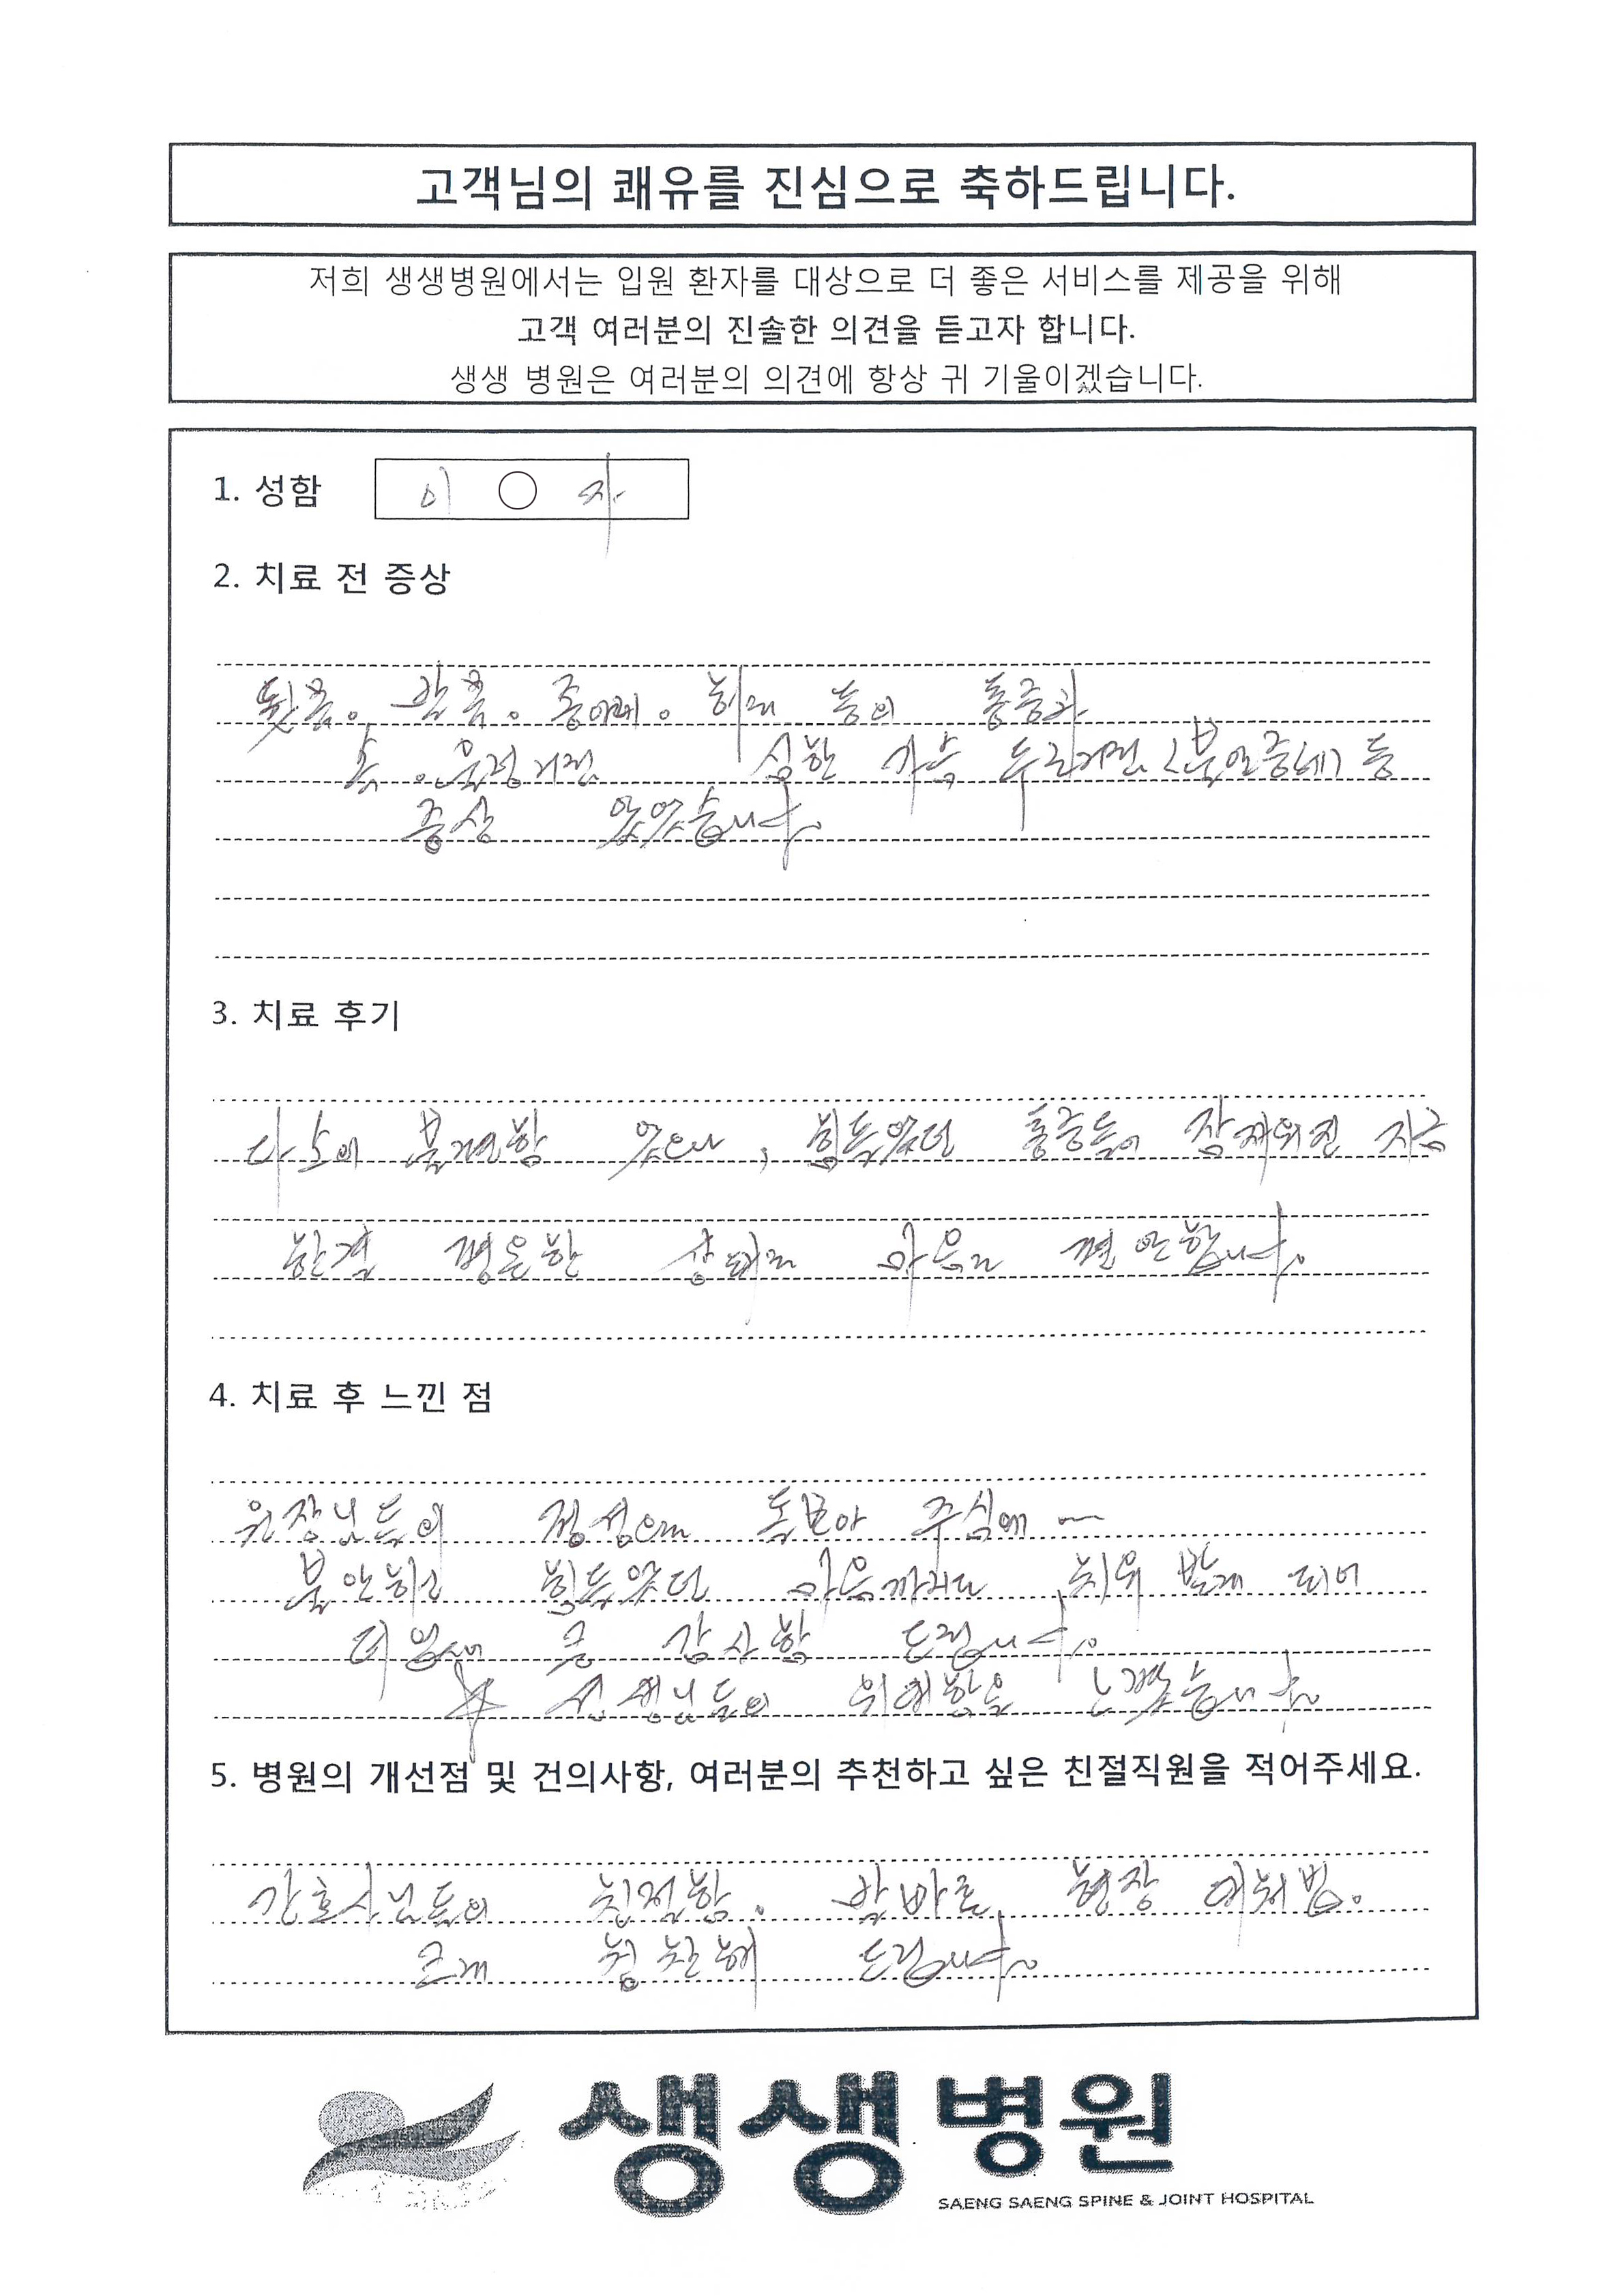 고객님의 쾌유를 진심으로 축하드립니다.
저희 생생병원에서는 입원 환자를 대상으로 더 좋은 서비스를 제공을 위해
고객 여러분의 진솔한 의견을 듣고자 합니다.
생생 병원은 여러분의 의견에 항상 귀 기울이겠습니다.
1. 성함 이 ○ 자
2. 치료 전 증상
뒷쪽. 발쪽. 종아리. 허리 등의 통증과
심한 가슴 두근거림 (불안증세) 등
증상 있었습니다.
3. 치료 후기
다소의 불편함 있으나, 힘들었던 통증들이 잠재워진 지금
한결 평온한 상태로 마음도 편안합니다.
4. 치료 후 느낀 점
원장님들의 정성으로 돌보아 주심에 ~
불안하고 힘들었던 마음까지도 치유 받게 되어
더욱 큰 감사함 드립니다.
선생님들의 위대함을 느꼈습니다.
5. 병원의 개선점 및 건의사항, 여러분의 추천하고 싶은 친절직원을 적어주세요.
간호사님들의 친절함. 발빠른 현장 대처법.
크게 칭찬해 드립니다.
생생병원
SAENG SAENG SPINE & JOINT HOSPITAL